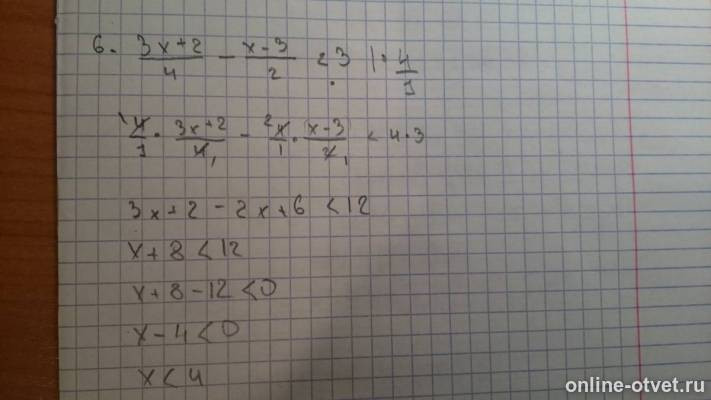 6. (3x+2)/4 - (x-3)/2 < 3 | · 4/1
4/1 · (3x+2)/4 - 4/1 · (x-3)/2 < 4·3
3x+2 - 2x+6 < 12
x+8 < 12
x+8-12 < 0
x-4 < 0
x < 4
online-otvet.ru